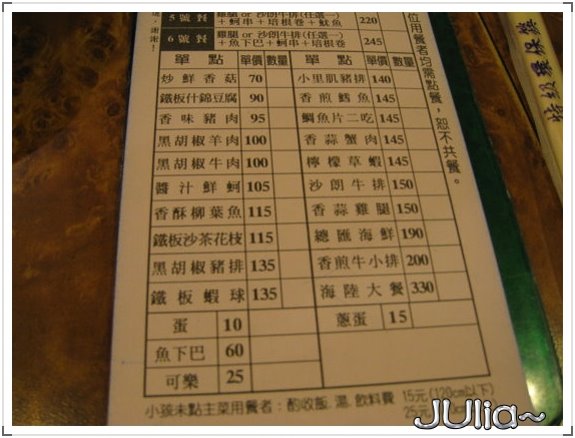 5號餐 雞腿 or 沙朗牛排(任選一)+蚵串+培根卷+魷魚 220
6號餐 雞腿 or 沙朗牛排(任選一)+魚下巴+蚵串+培根卷 245
單點 單價 數量 單點 單價 數量
炒鮮香菇 70 小里肌豬排 140
鐵板什錦豆腐 90 香煎鱈魚 145
香味豬肉 95 鯛魚片二吃 145
黑胡椒羊肉 100 香蒜蟹肉 145
黑胡椒牛肉 100 檸檬草蝦 145
醬汁鮮蚵 105 沙朗牛排 150
香酥柳葉魚 115 香蒜雞腿 150
鐵板沙茶花枝 115 總匯海鮮 190
黑胡椒豬排 135 香煎牛小排 200
鐵板蝦球 135 海陸大餐 330
蛋 10 蔥蛋 15
魚下巴 60
可樂 25
小孩未點主菜用餐者：酌收飯.湯.飲料費 15元(120cm以下)
25元
位用餐者均需點餐，恕不共餐。
謝謝！
特級環保筷
JUlia~